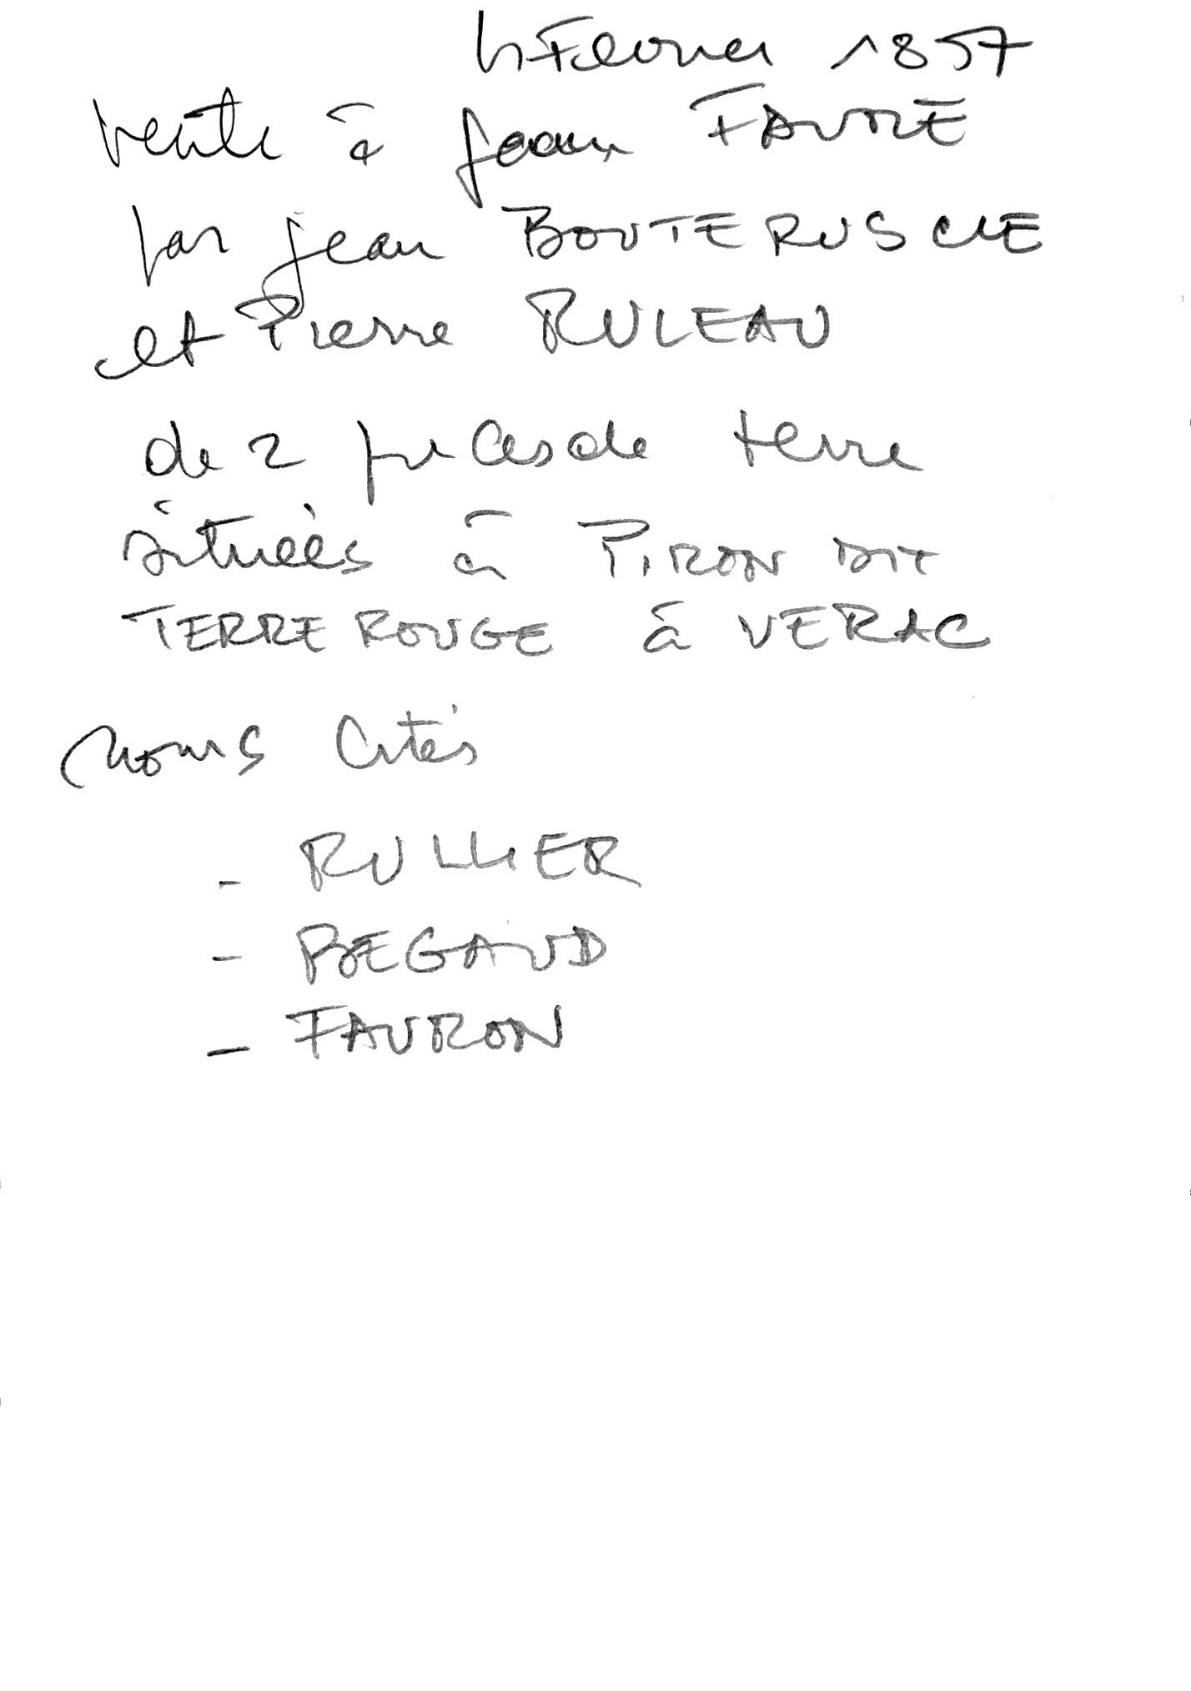 4 Fevrier 1857
vente à Jean FAVRE
par jean BOUTERUSCHE
et Pierre RULEAU
de 2 pieces de terre
situées à PIRON DIT
TERRE ROUGE à VERAC
Noms cités
- RULLIER
- BEGAUD
- FAURON